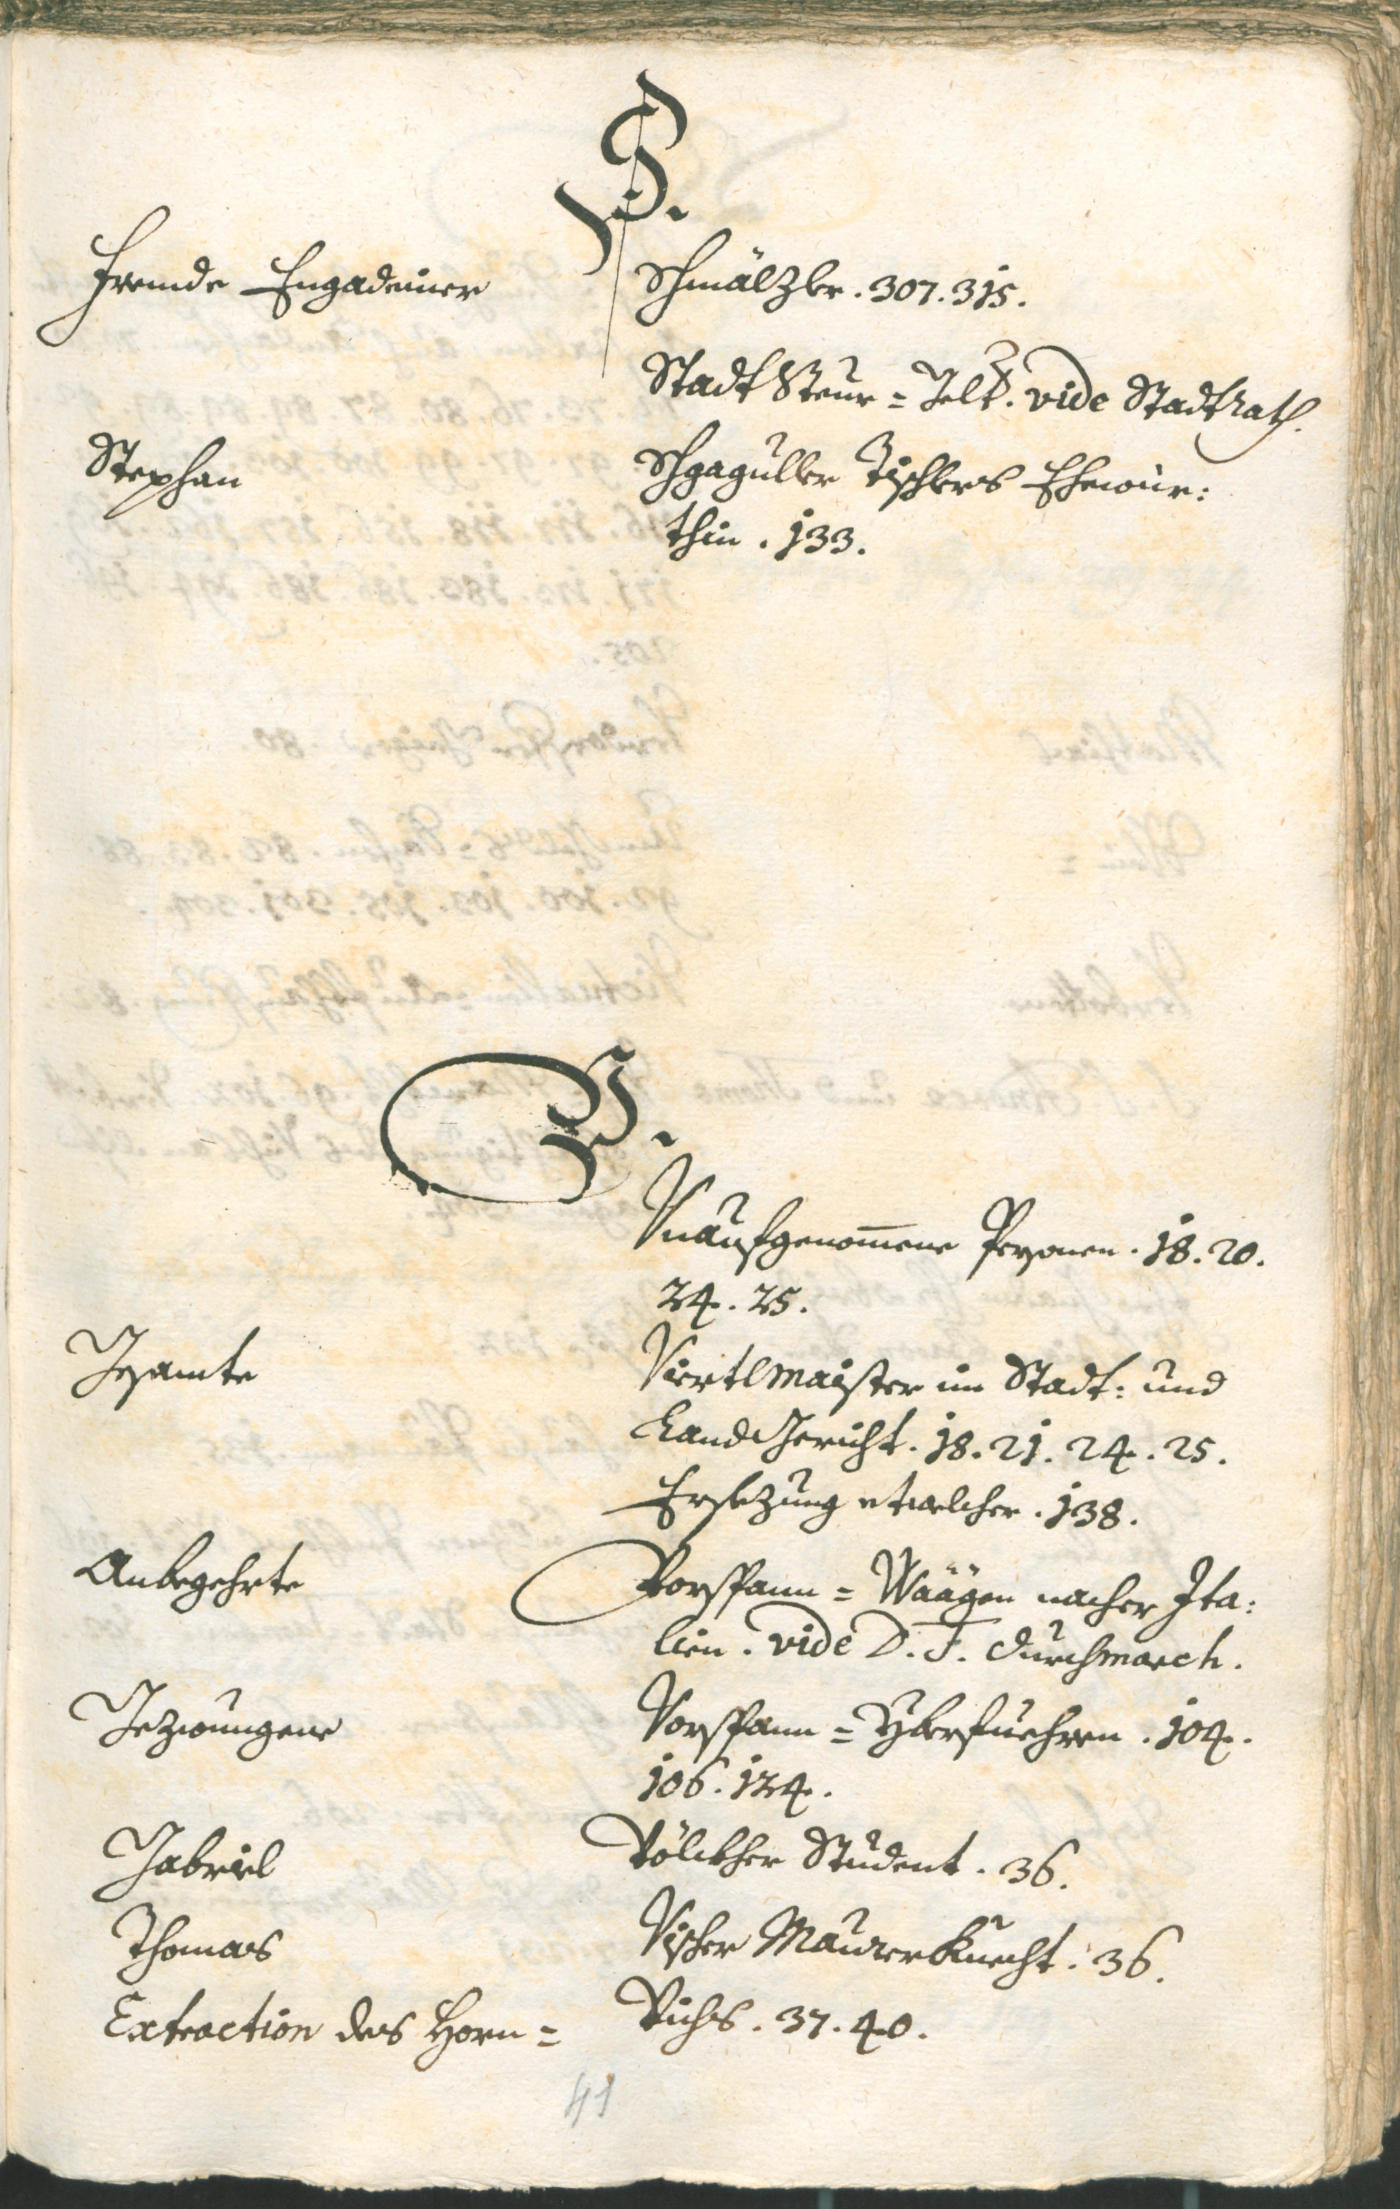 S.
Fremde Engadeiner Schmälzler. 307. 315.
Stadt Steur = Gelt. vide Stadt Rath.
Stephan Schgaguller Tischlers Ehewür:
thin. 133.
V.
Vnaufgenom̅ene Personen. 18. 20.
24. 25.
Gesamte Viertlmaister im Stadt: und
Landgericht. 18. 21. 24. 25.
Ersezung etwelcher. 138.
Anbegehrte Vorspann = Wäägen nacher Ita:
lien. vide D. T. Durchmarch.
Gezwungene Vorspann = Yberfuehren. 104.
106. 124.
Gabriel Völckher Student. 36.
Thomas Vischer Maurerknecht. 36.
Extraction des Horn = Vichs. 37. 40.
41